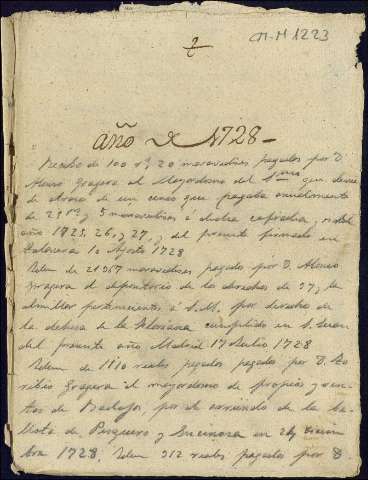 M-H 1223
año de 1728
Recibo de 100 rs 20 maravedises pagados por D.
Alonso Grajera al Mayordomo del Smo que deve
de atraso de un censo que pagaba anualmente
de 25 rs y 5 maravedises á dicha cofradia, en los
año 1725, 26, y 27, y del presente firmado en
Talavera 1o Agosto 1728
Idem de 21967 maravedises pagados por D. Alonso
Grajera al depositario de los derechos de
pertenecientes á S. M. por derecho de
la dehesa de la cumplido en S. Juan
del presente año Madrid 17 Julio 1728
Idem de 1110 reales pagados por D.
Grajera al mayordomo de propios y ren-
tas de Badajoz, por el arriendo de la be-
llota de y en 24
bre 1728. Idem 912 reales pagados por D.